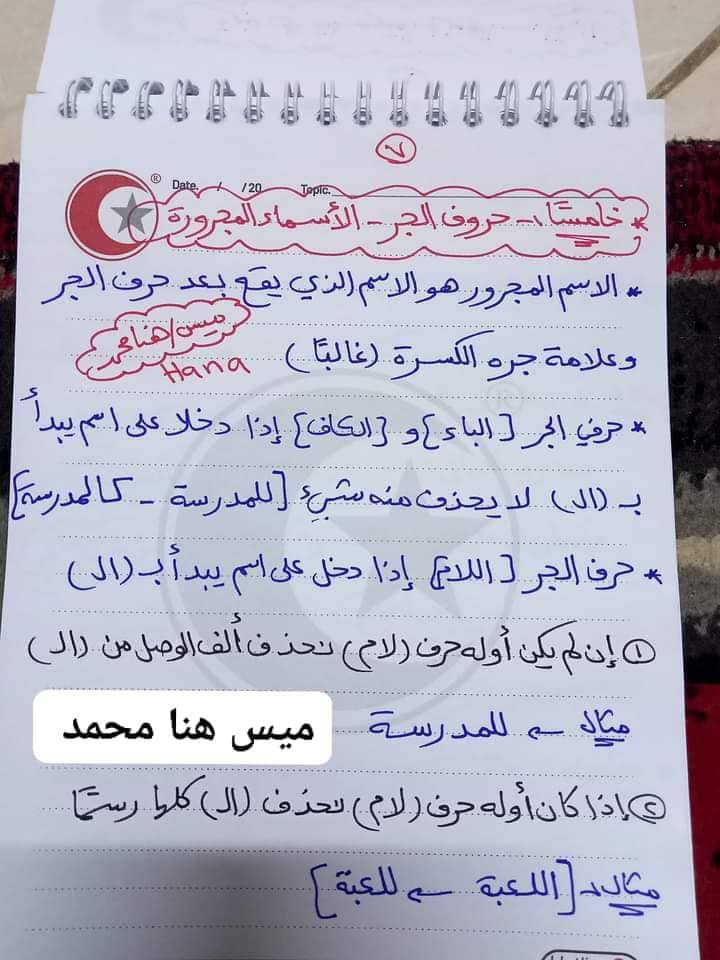 ٧
Date. / /20 Topic.
* خامسًا :- حروف الجر - الأسماء المجرورة
* الاسم المجرور هو الاسم الذي يقع بعد حرف الجر
وعلامة جره الكسرة (غالبًا)
ميس/هنا محمد
Hana
* حرفي الجر [الباء] و [الكاف] إذا دخلا على اسم يبدأ
بـ (الـ) لا يحذف منه شيء [للمدرسة - كالمدرسة]
* حرف الجر [اللام] إذا دخل على اسم يبدأ بـ (الـ)
① إن لم يكن أوله حرف (لام) تحذف ألف الوصل من (الـ)
مثال ← للمدرسة
ميس هنا محمد
② إذا كان أوله حرف (لام) تحذف (الـ) كلها رسمًا
مثال: [اللعبة ← للعبة]